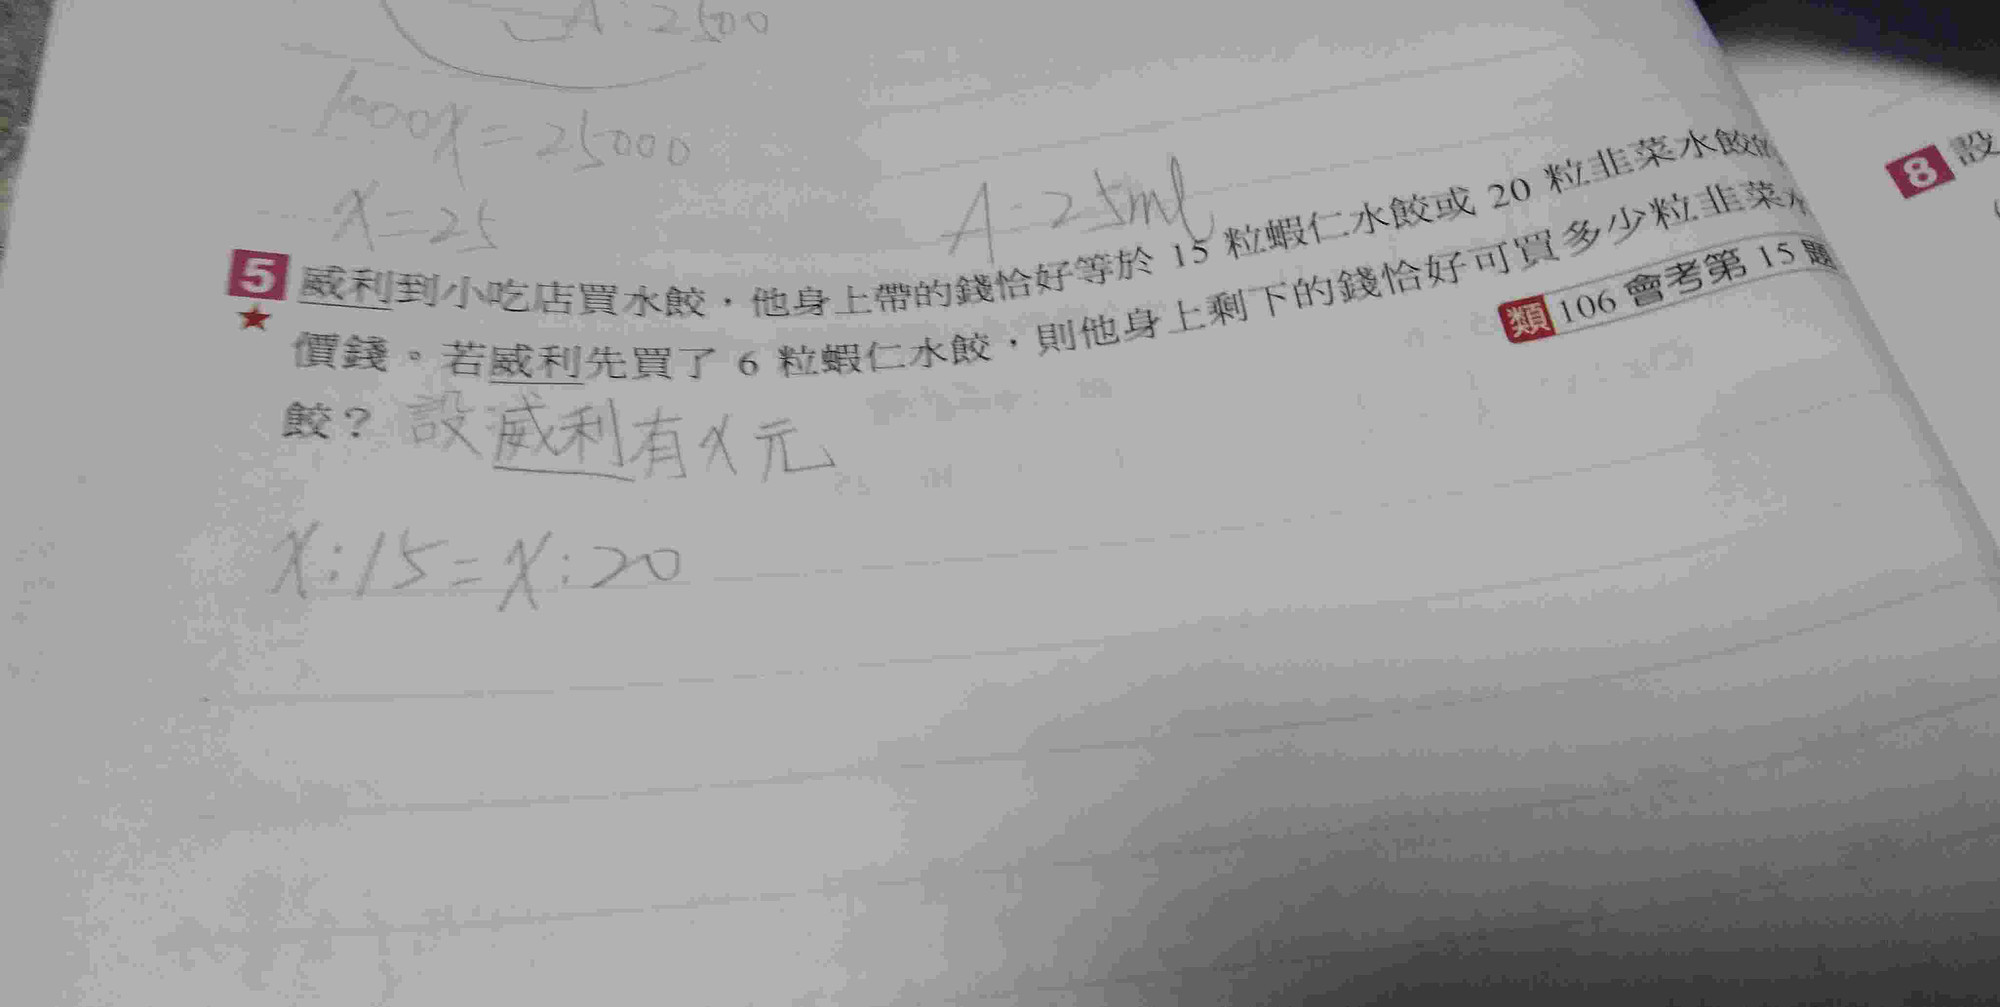 A:2500
1000x=25000
x=25
A=25ml
5 威利到小吃店買水餃，他身上帶的錢恰好等於 15 粒蝦仁水餃或 20 粒韭菜水餃的
★ 價錢。若威利先買了 6 粒蝦仁水餃，則他身上剩下的錢恰好可買多少粒韭菜水
餃？ 設威利有x元
類 106 會考第 15 題
x:15=x:20
8 設